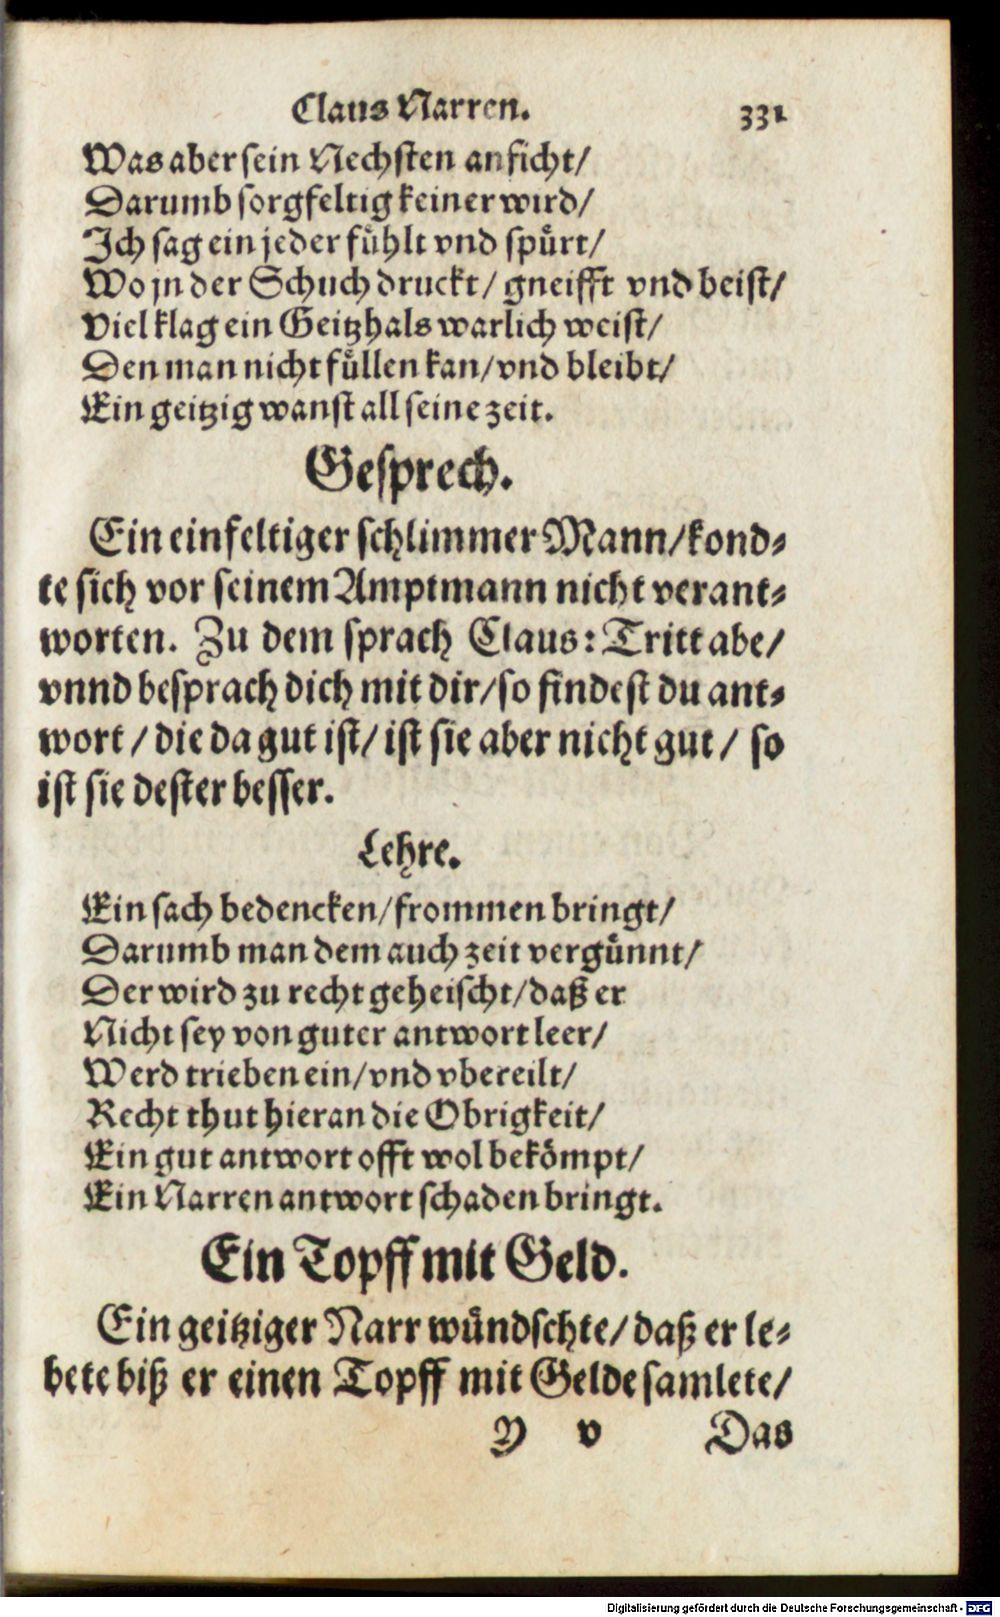 Claus Narren. 331
Was aber sein Nechsten anficht/
Darumb sorgfeltig keiner wird/
Ich sag ein jeder fühlt vnd spürt/
Wo jn der Schuch druckt/ gneifft vnd beist/
Viel klag ein Geitzhals warlich weist/
Den man nicht füllen kan/vnd bleibt/
Ein geitzig wanst all seine zeit.
Gesprech.
Ein einfeltiger schlimmer Mann/kond⸗
te sich vor seinem Amptmann nicht verant⸗
worten. Zu dem sprach Claus: Tritt abe/
vnnd besprach dich mit dir/so findest du ant⸗
wort/ die da gut ist/ ist sie aber nicht gut/ so
ist sie dester besser.
Lehre.
Ein sach bedencken/frommen bringt/
Darumb man dem auch zeit vergünnt/
Der wird zu recht geheischt/daß er
Nicht sey von guter antwort leer/
Werd trieben ein/vnd vbereilt/
Recht thut hieran die Obrigkeit/
Ein gut antwort offt wol bekömpt/
Ein Narren antwort schaden bringt.
Ein Topff mit Geld.
Ein geitziger Narr wündschte/daß er le⸗
bete biß er einen Topff mit Gelde samlete/
Y v Das
Digitalisierung gefördert durch die Deutsche Forschungsgemeinschaft - DFG